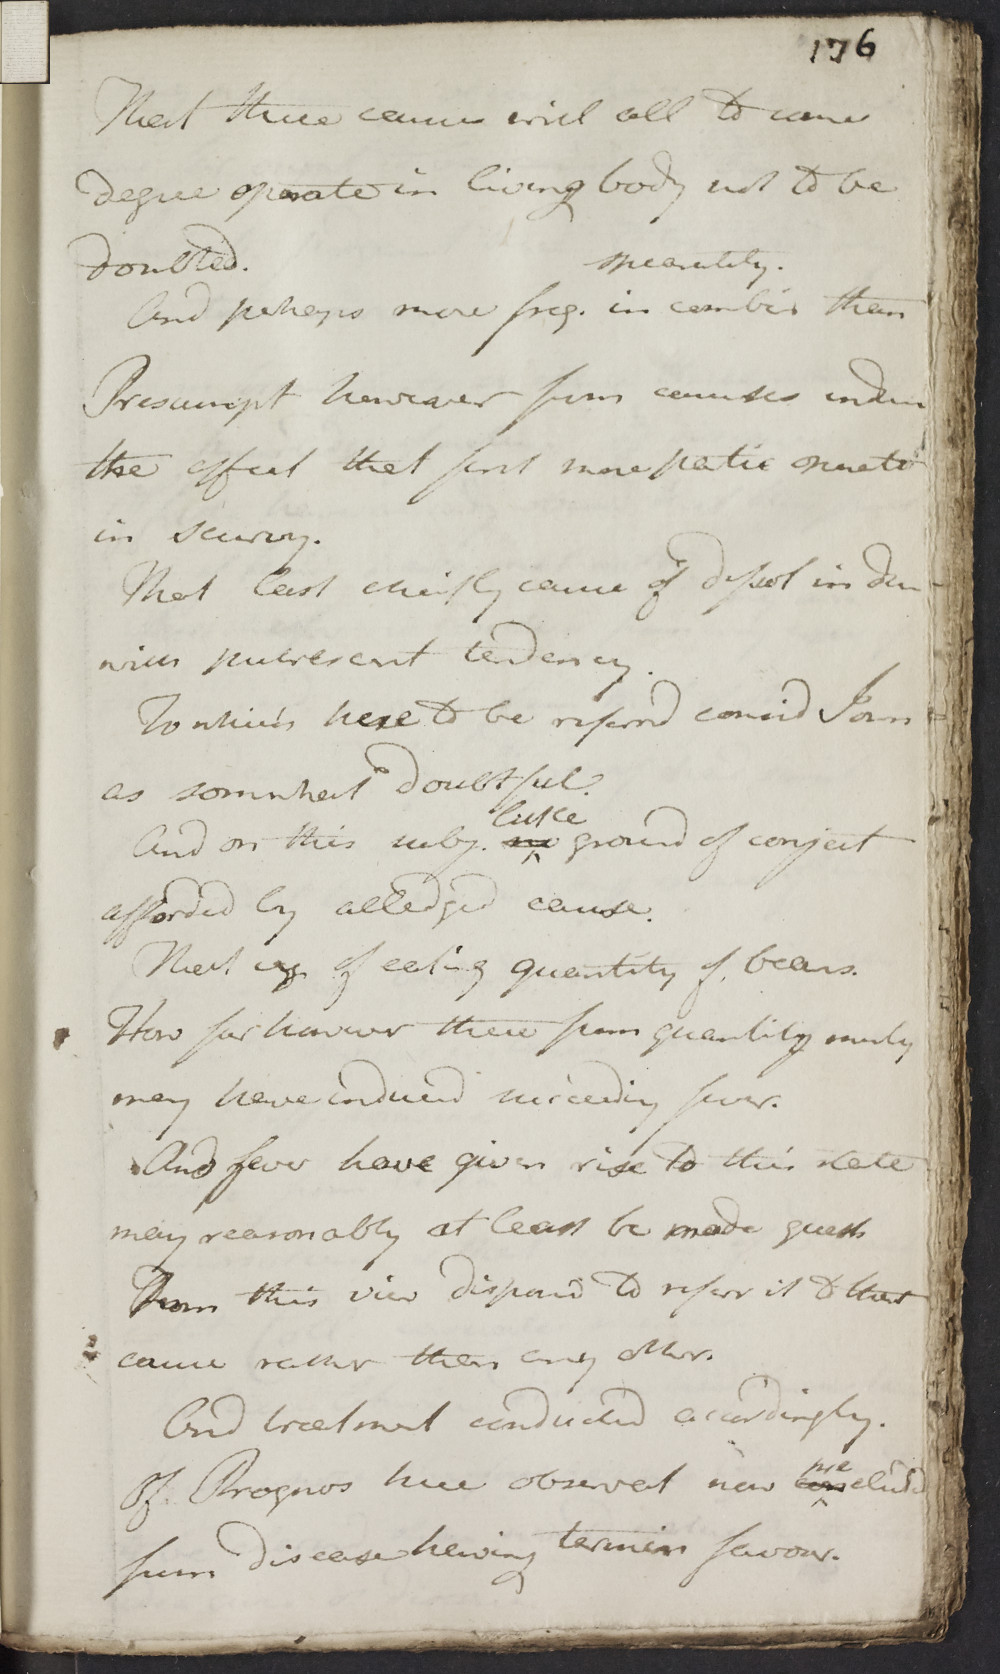 176
That these causes will all to some
degree operate in living body not to be
doubted.
separately.
And perhaps more freq. in combin than
Presumpt however from causes induc
the effect that first more partic operate
in scurvy.
That last chiefly cause of defect in den
with putrescent tendency.
To which here to be referrd considd Townd
as somewhat doubtful.
little
And on this subj. no ground of conject
afforded by alledged cause.
That viz of eating quantity of beans.
How far however these from quantity merely
may have inducd succeeding fever.
And fever have given rise to this state
may reasonably at least be made guess
From this view disposd to referr it to that
cause rather than any other.
And treatment conducted accordingly.
Of Prognos here observed now concluded
from disease having termin favour.